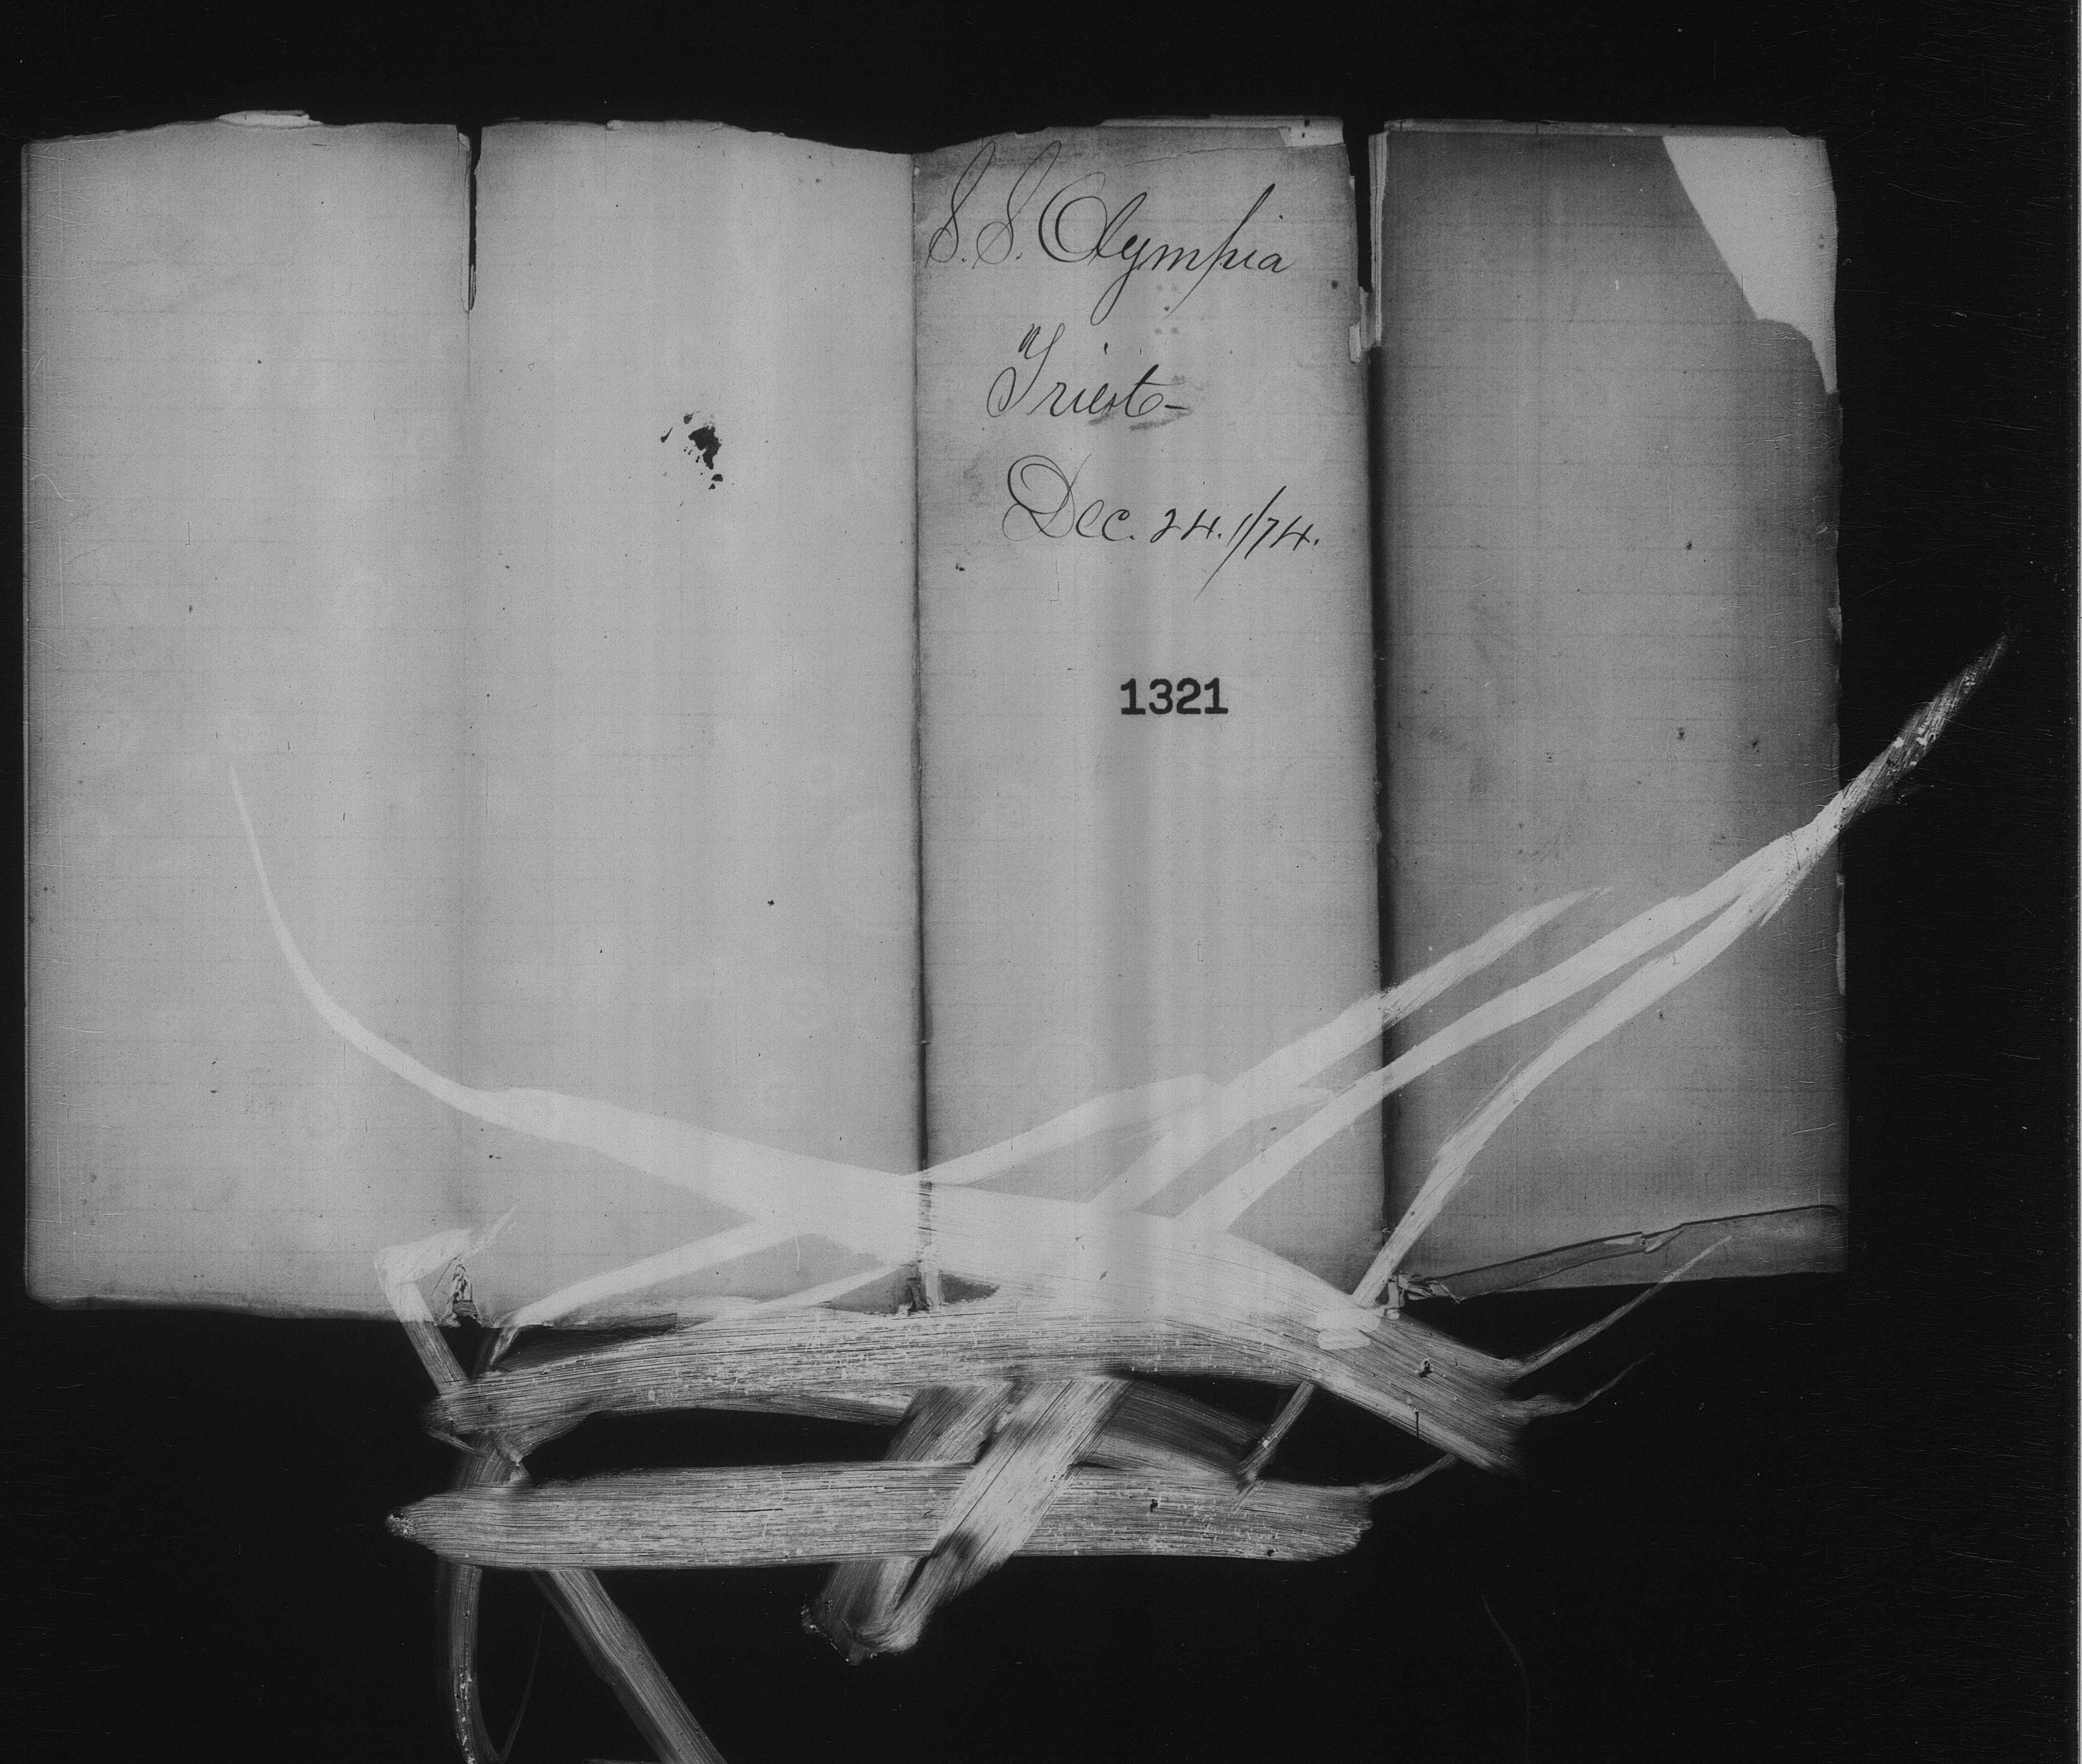 S.S. Olympia
Trieste
Dec. 24. 1/74.
1321